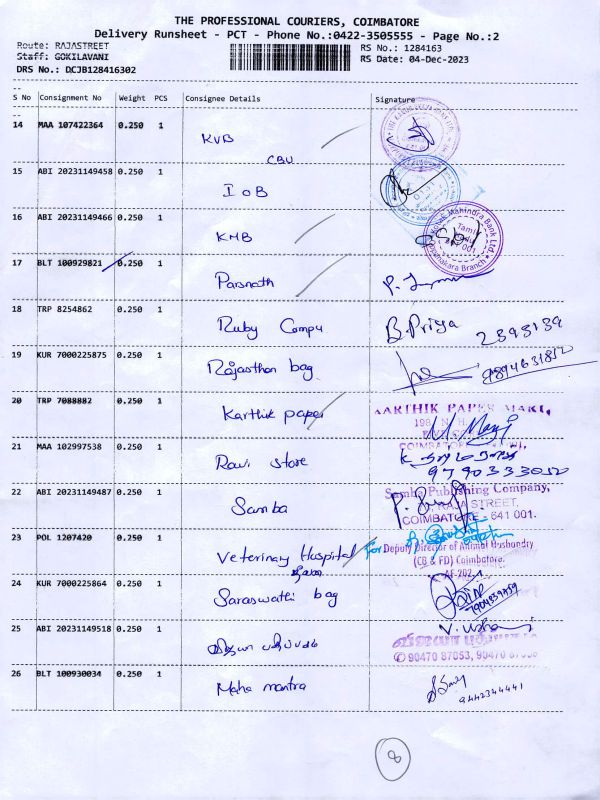 THE PROFESSIONAL COURIERS, COIMBATORE
Delivery Runsheet - PCT - Phone No.:0422-3505555 - Page No.:2
Route: RAJASTREET
Staff: GOKILAVANI
DRS No.: DCJB128416302
RS No.: 1284163
RS Date: 04-Dec-2023
S No Consignment No Weight PCS Consignee Details Signature
14 MAA 107422364 0.250 1 KVB
CBU
15 ABI 20231149458 0.250 1 IOB
16 ABI 20231149466 0.250 1 KMB
Mahindra Bank Ltd
Branch
17 BLT 100929821 0.250 1 Parsnath
18 TRP 8254862 0.250 1 Ruby Compu B.Priya 2393139
19 KUR 7000225875 0.250 1 Rajasthan bag 9894631852
20 TRP 7088882 0.250 1 Karthik paper
KARTHIK PAPER MART,
21 MAA 102997538 0.250 1 Ravi store
9790333052
22 ABI 20231149487 0.250 1 Samba
Samba Publishing Company,
RAJA STREET,
COIMBATORE - 641 001.
23 POL 1207420 0.250 1 Veterinary Hospital
For Deputy Director of Animal Husbandry
(CB & FD) Coimbatore.
24 KUR 7000225864 0.250 1 Saraswathi bag
25 ABI 20231149518 0.250 1
V. Usha
90470 87053, 90470
26 BLT 100930034 0.250 1 Maha mantra
9442344441
8